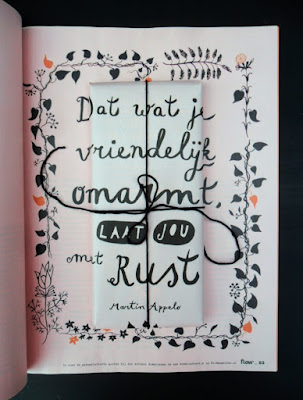 Dat wat je
vriendelijk
omarmt,
LAAT JOU
met Rust
Martin Appelo
flow_63